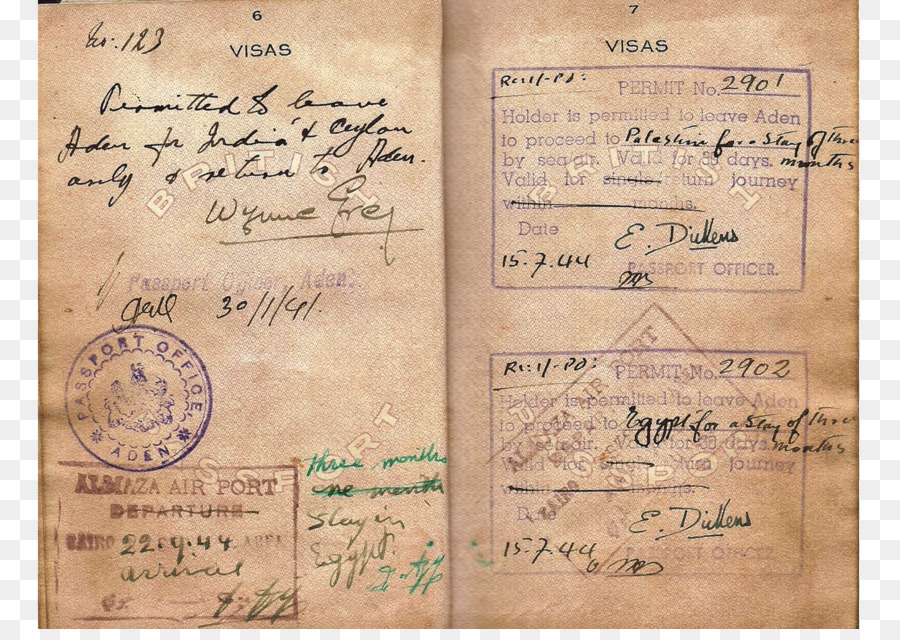 6
No. 123
VISAS
Permitted to leave
Aden for India & Ceylon
only & return to Aden.
Wynne Grey
Passport Officer, Aden.
30/1/41.
PASSPORT OFFICE
ADEN
BRITISH
PASSPORT
ALMAZA AIR PORT
DEPARTURE
CAIRO AREA
22.9.44
arrival
three months
one month
Stay in
Egypt.
7
VISAS
PERMIT No. 2901
Holder is permitted to leave Aden
to proceed to Palastine for a Stay of three
by sea/air. Valid for 35 days. months
Valid for single return journey
within months.
Date
E. Dickens
15.7.44
PASSPORT OFFICER.
PERMIT No. 2902
Holder is permitted to leave Aden
to proceed to Egypt for a Stay of three
by sea/air. Valid for days. months
Valid for single return journey
within months.
Date
E. Dickens
15.7.44
PASSPORT OFFICER.
ALMAZA AIR PORT